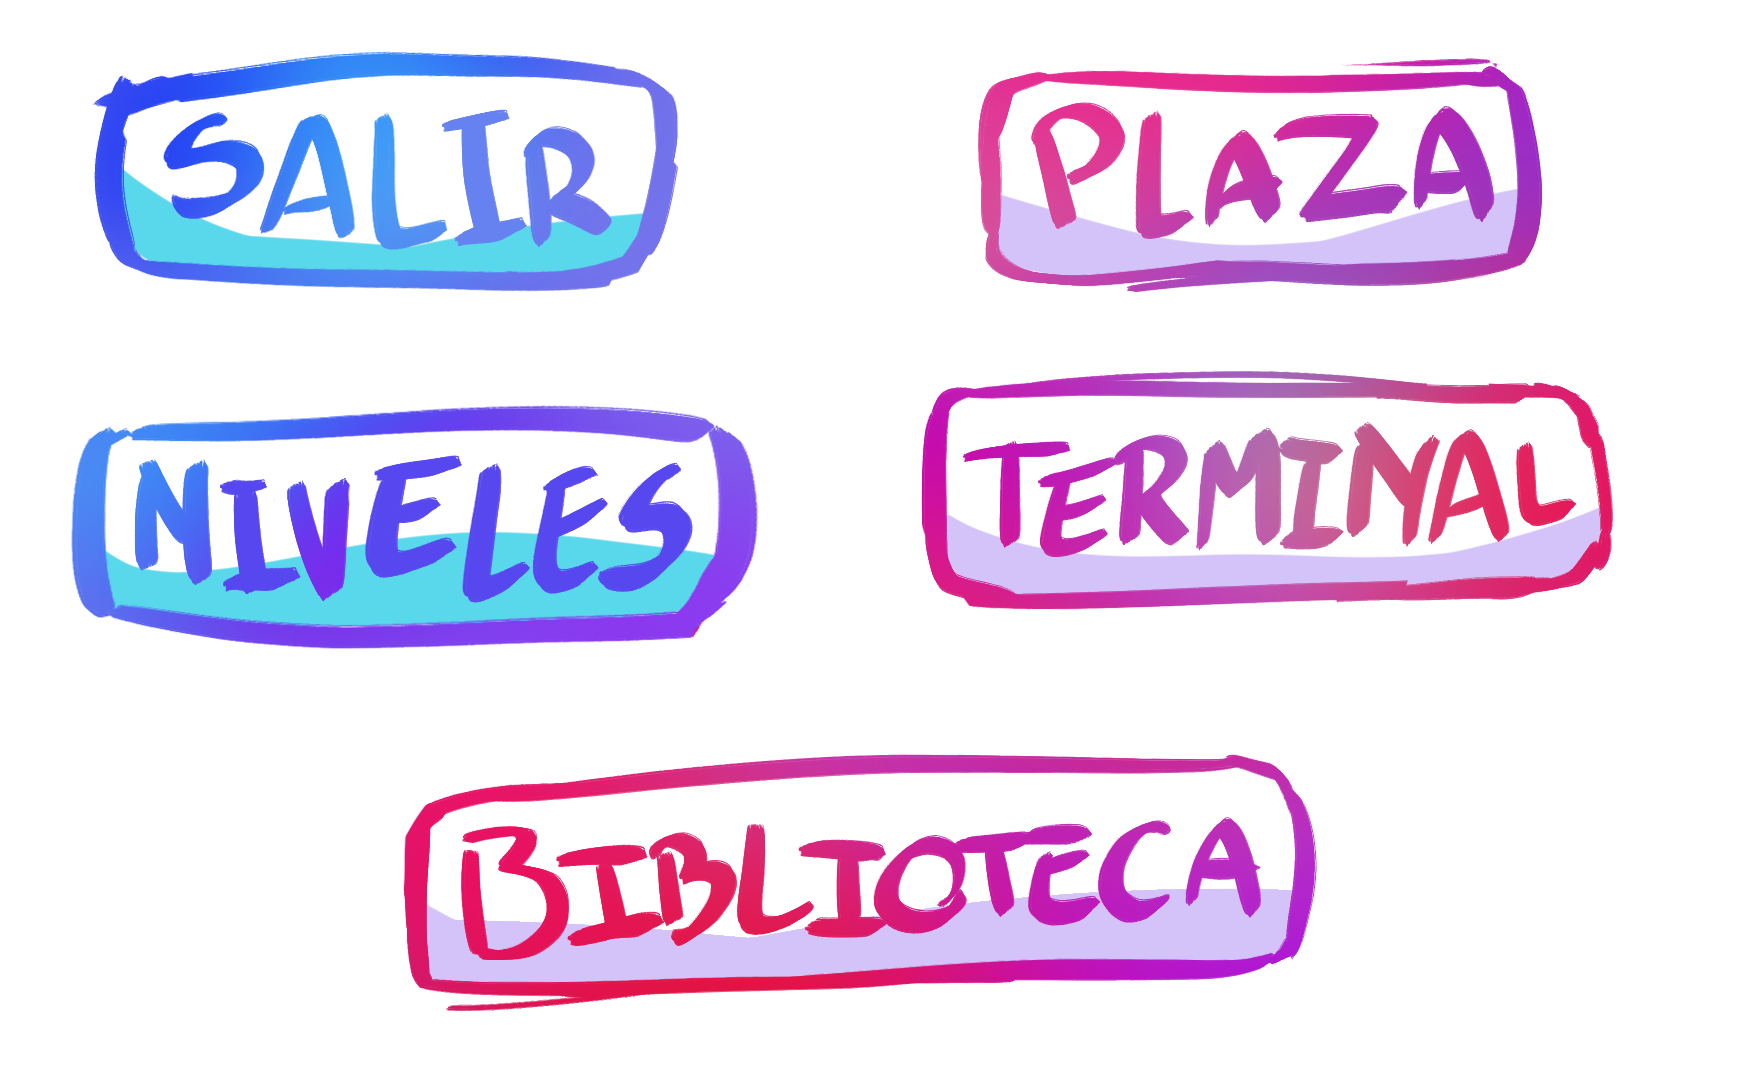 SALIR
PLAZA
NIVELES
TERMINAL
BIBLIOTECA